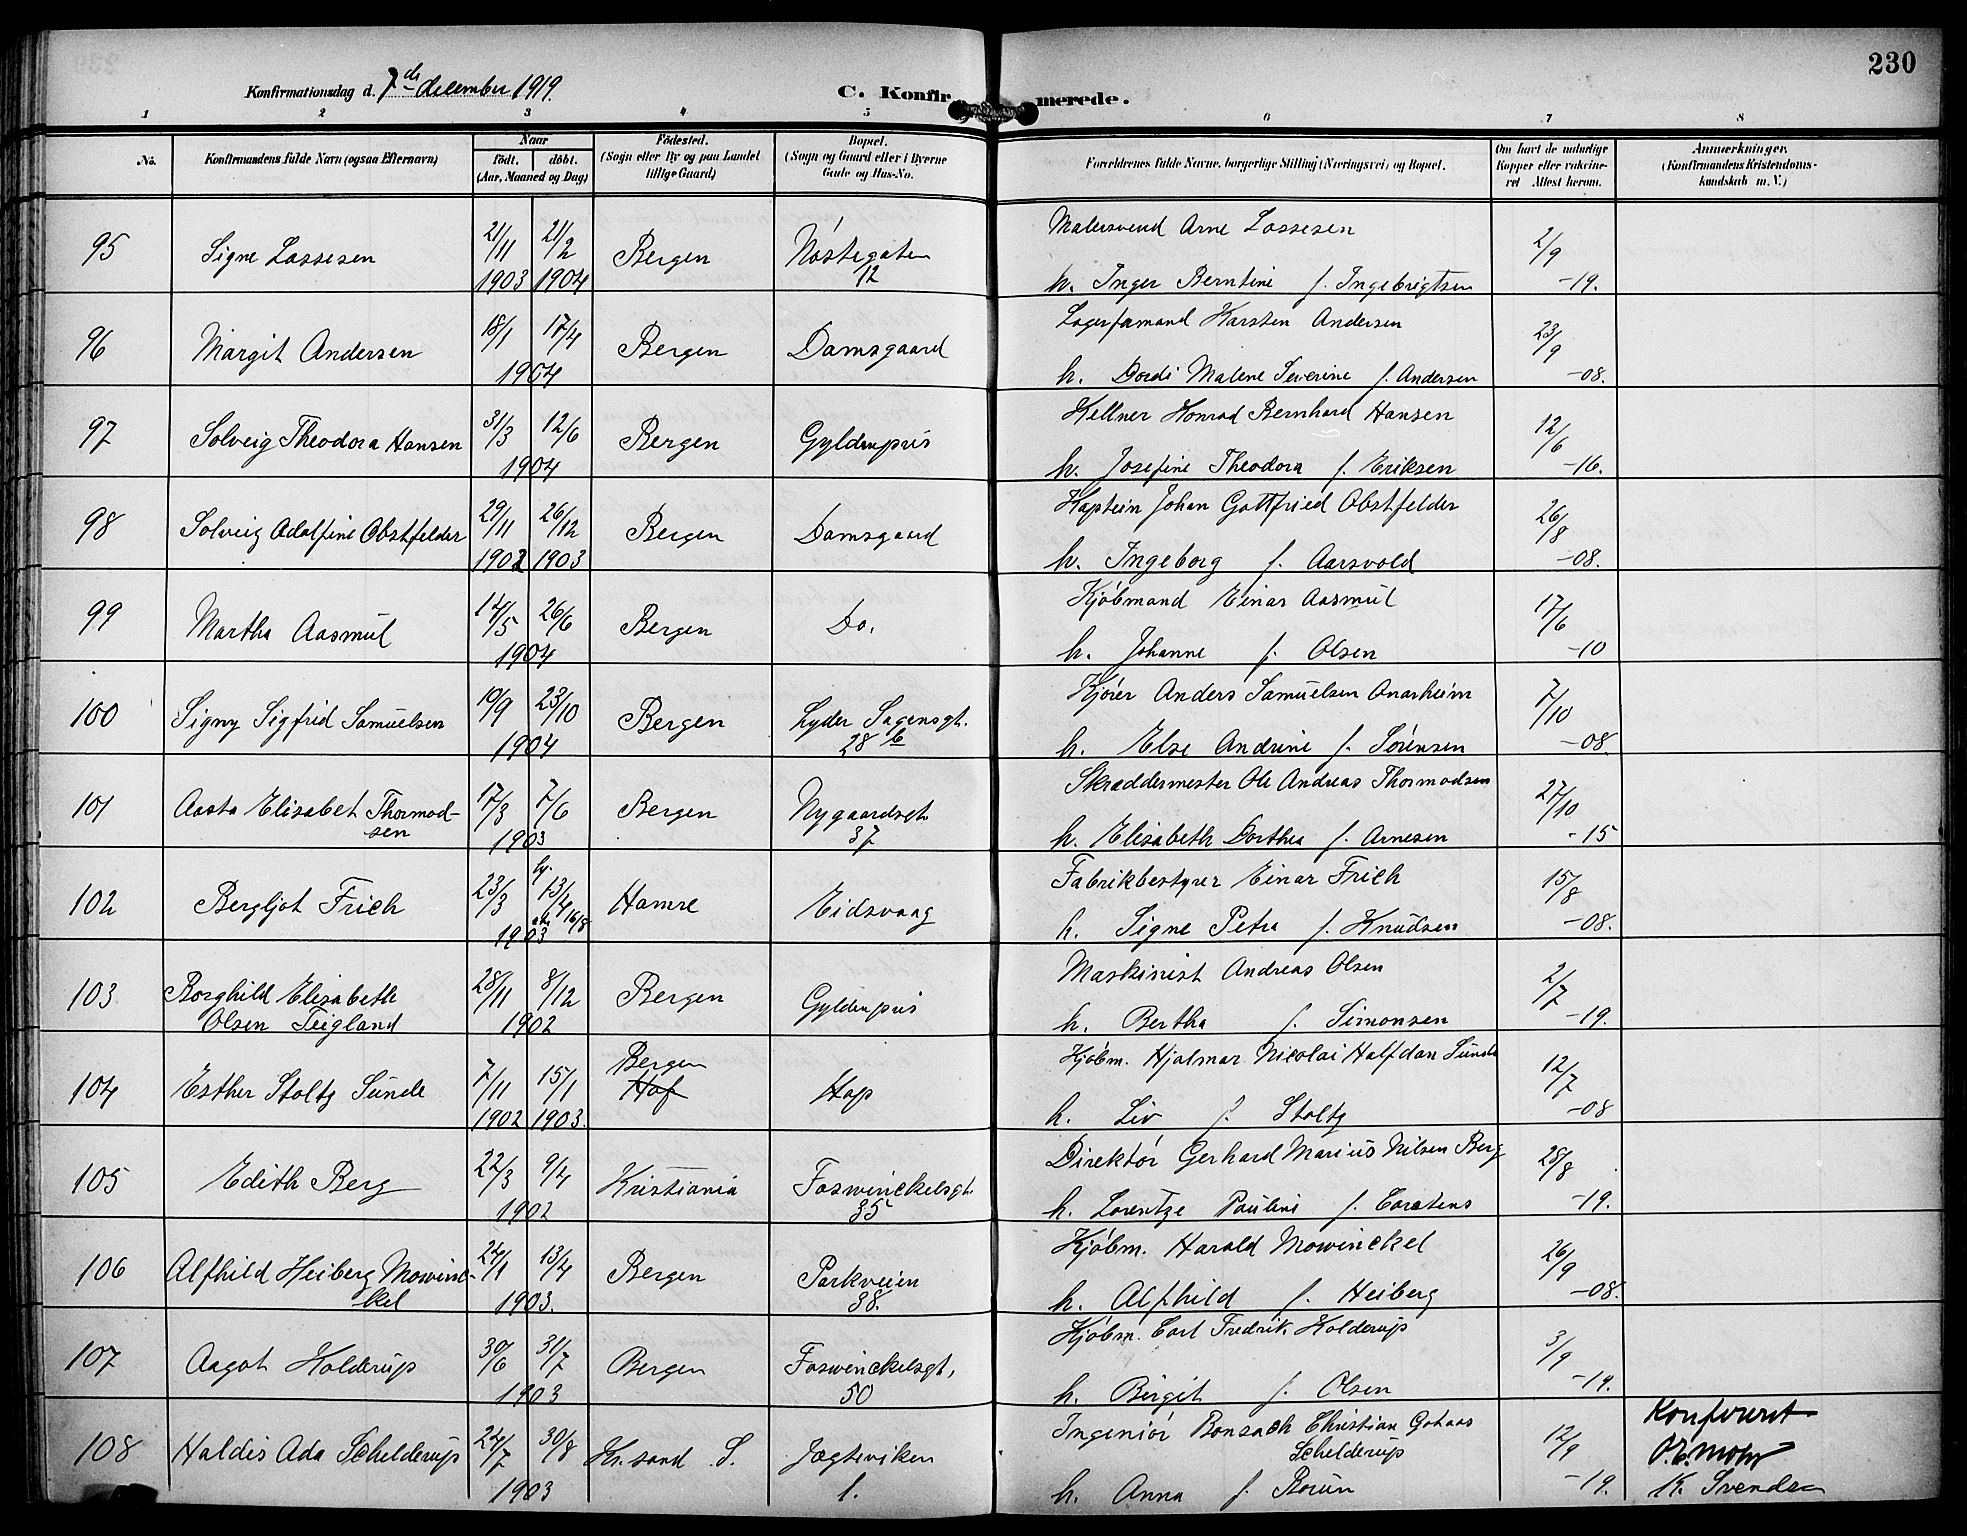 230
Konfirmationsdag d. 7de december 1919.
C. Konfirmerede.
1 2 3 4 5 6 7 8
No.
Konfirmandens fulde Navn (ogsaa Efternavn)
Naar
födt. döbt.
(Aar, Maaned og Dag)
Födested.
(Sogn eller By og paa Landet
tillige Gaard)
Bopæl.
(Sogn og Gaard eller i Byerne
Gade og Hus-No.
Forældrenes fulde Navne, borgerlige Stilling (Næringsvei) og Bopæl.
Om havt de naturlige
Kopper eller vakcine-
ret Attest herom.
Anmærkninger.
(Konfirmandens Kristendoms-
kundskab m. V.)
95 Signe Lassesen 21/11 1903 21/2 1904 Bergen Nöstegaten 12 Malersvend Arne Lassesen 2/9
h. Inger Berntine f. Ingebrigtsen -19.
96 Margit Andersen 18/1 17/4 1904 Bergen Damsgaard Lagerformand Karsten Andersen 23/9
h. Dordi Malene Severine f. Andersen -08.
97 Solveig Theodora Hansen 31/3 12/6 1904 Bergen Gyldenpris Kellner Konrad Bernhard Hansen 12/6
h. Josefine Theodora f. Eriksen -16.
98 Solveig Adolfine Obstfelder 29/11 1902 26/12 1903 Bergen Damsgaard Kaptein Johan Gottfried Obstfelder 26/8
h. Ingeborg f. Aarsvold -08.
99 Martha Aasmul 14/5 26/6 1904 Bergen Do. Kjöbmand Einar Aasmul 17/6
h. Johanne f. Olsen -10
100 Signy Sigfrid Samuelsen 10/9 23/10 1904 Bergen Lyder Sagensgt. 28 b Kjörer Anders Samuelsen Onarheim 7/10
h. Else Andrine f. Sörensen -08.
101 Aasta Elisabet Thormod-
sen 17/3 7/6 1903 Bergen Nygaardsgt. 37 Skræddermester Ole Andreas Thormodsen 27/10
h. Elisabeth Dorthea f. Arnesen -15
102 Bergljot Frich 23/3 13/4 1903 16/8 Hamre Eidsvaag Fabrikbestyrer Einar Frich 15/8
h. Signe Petra f. Knudsen -08.
103 Borghild Elisabeth
Olsen Teigland 28/11 8/12 1902 Bergen Gyldenpris Maskinist Andreas Olsen 2/7
h. Bertha f. Simonsen -19.
104 Esther Stoltz Sunde 7/11 1902 15/1 1903. Bergen Hop Hop Kjöbm. Hjalmar Nicolai Halfdan Sunde 12/7
h. Liv f. Stoltz -08
105 Edith Berg 22/3 9/4 1902 Kristiania Foswinckelsgt. 35 Direktör Gerhard Marius Nilsen Berg 28/8
h. Lorentze Pauline f. Carstens -19.
106 Alfhild Heiberg Mowinc-
kel 24/1 13/4 1903. Bergen Parkveien 38. Kjöbm. Harald Mowinckel 26/9
h. Alfhild f. Heiberg -08.
107 Aagot Holderup 30/6 31/7 1903 Bergen Foswinckelsgt. 50 Kjöbm. Carl Fredrik Holderup 3/9
h. Birgit f. Olsen -19.
108 Haldis Ada Schelderup 24/7 30/8 1903 Kr.sand S. Jægteviken 1. Ingeniör Bonsach Christian
Schelderup 12/9
h. Anna f. Brun -19.
Konfereret
O. C. Mohr
K. Svendsen